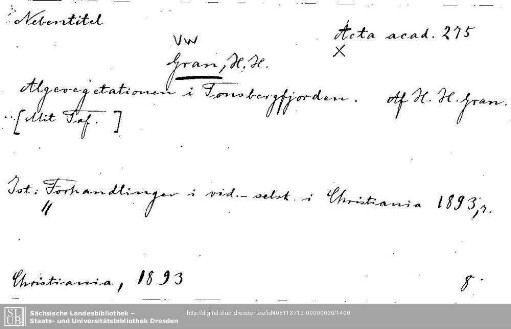 Nebentitel
Acta acad. 275
X
Vw
Gran, H. H.
Algevegetationen i Tonsbergfjorden. Af H. H. Gran.
[Mit Taf. ]
Ist: Forhandlinger i vid.-selsk. i Christiania 1893,
Christiania, 1893
8.
SLUB
Sächsische Landesbibliothek –
Staats- und Universitätsbibliothek Dresden